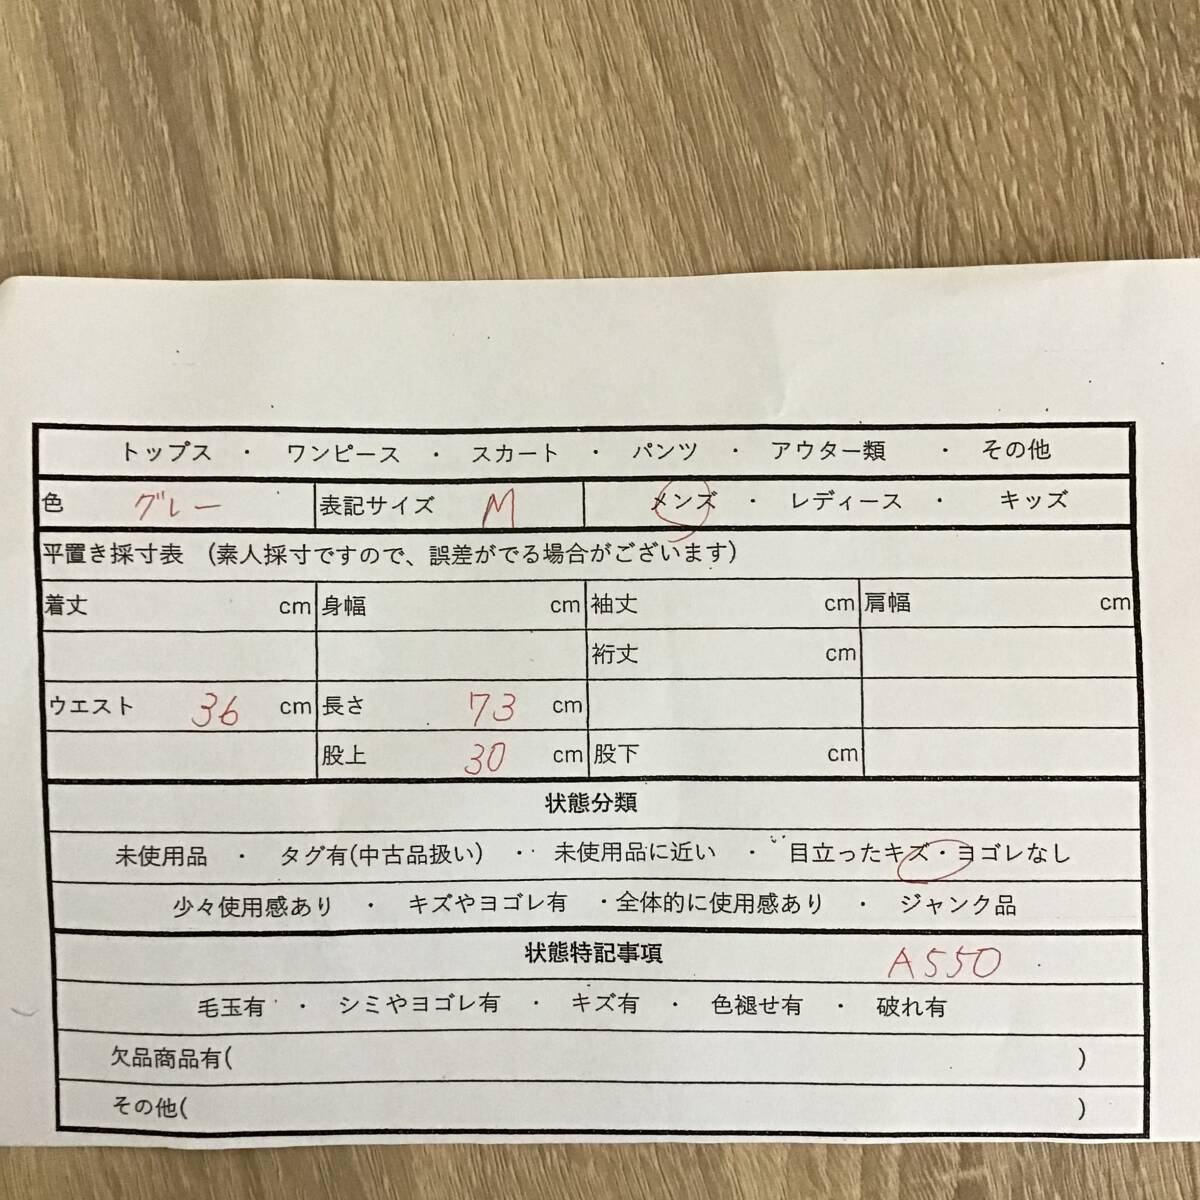 トップス ・ ワンピース ・ スカート ・ パンツ ・ アウター類 ・ その他
色 グレー 表記サイズ M メンズ ・ レディース ・ キッズ
平置き採寸表 (素人採寸ですので、誤差がでる場合がございます)
着丈 cm 身幅 cm 袖丈 cm 肩幅 cm
裄丈 cm
ウエスト 36 cm 長さ 73 cm
股上 30 cm 股下 cm
状態分類
未使用品 ・ タグ有(中古品扱い) ・ 未使用品に近い ・ 目立ったキズ・ヨゴレなし
少々使用感あり ・ キズやヨゴレ有 ・全体的に使用感あり ・ ジャンク品
状態特記事項 A550
毛玉有 ・ シミやヨゴレ有 ・ キズ有 ・ 色褪せ有 ・ 破れ有
欠品商品有( )
その他( )